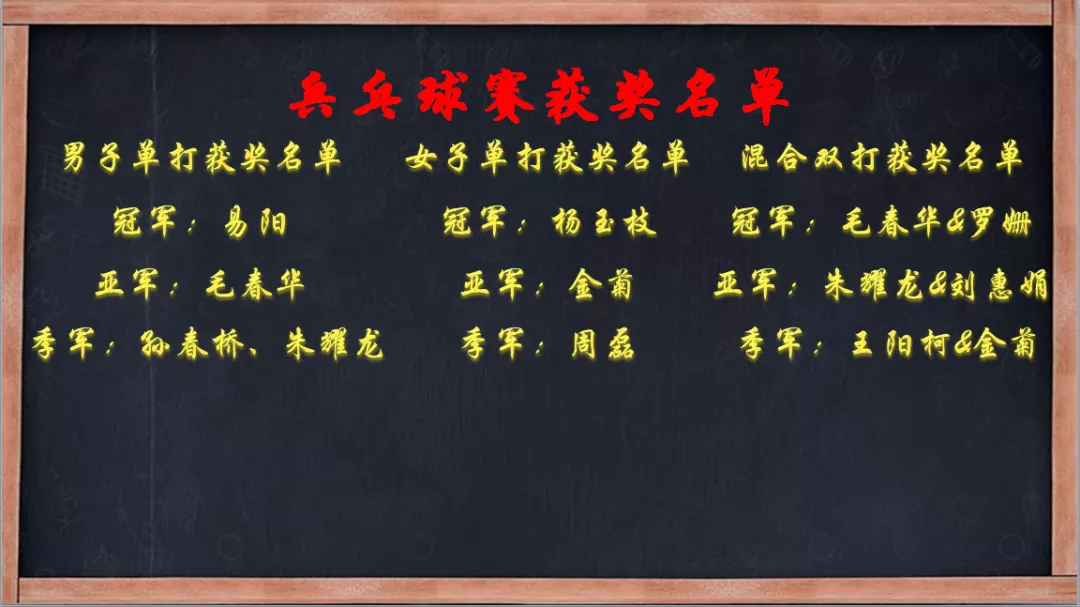 兵乓球赛获奖名单
男子单打获奖名单 女子单打获奖名单 混合双打获奖名单
冠军：易阳 冠军：杨玉枝 冠军：毛春华&罗姗
亚军：毛春华 亚军：金菊 亚军：朱耀龙&刘惠娟
季军：孙春桥、朱耀龙 季军：周磊 季军：王阳柯&金菊